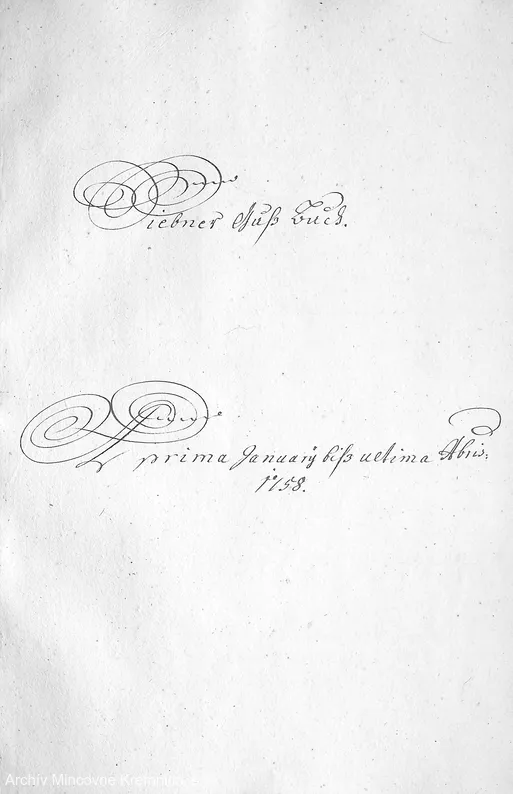 Ziebner Guß Buch.
A prima Januarÿ biß ultima Xbris:
1758.
Archív Mincovne Kremnica